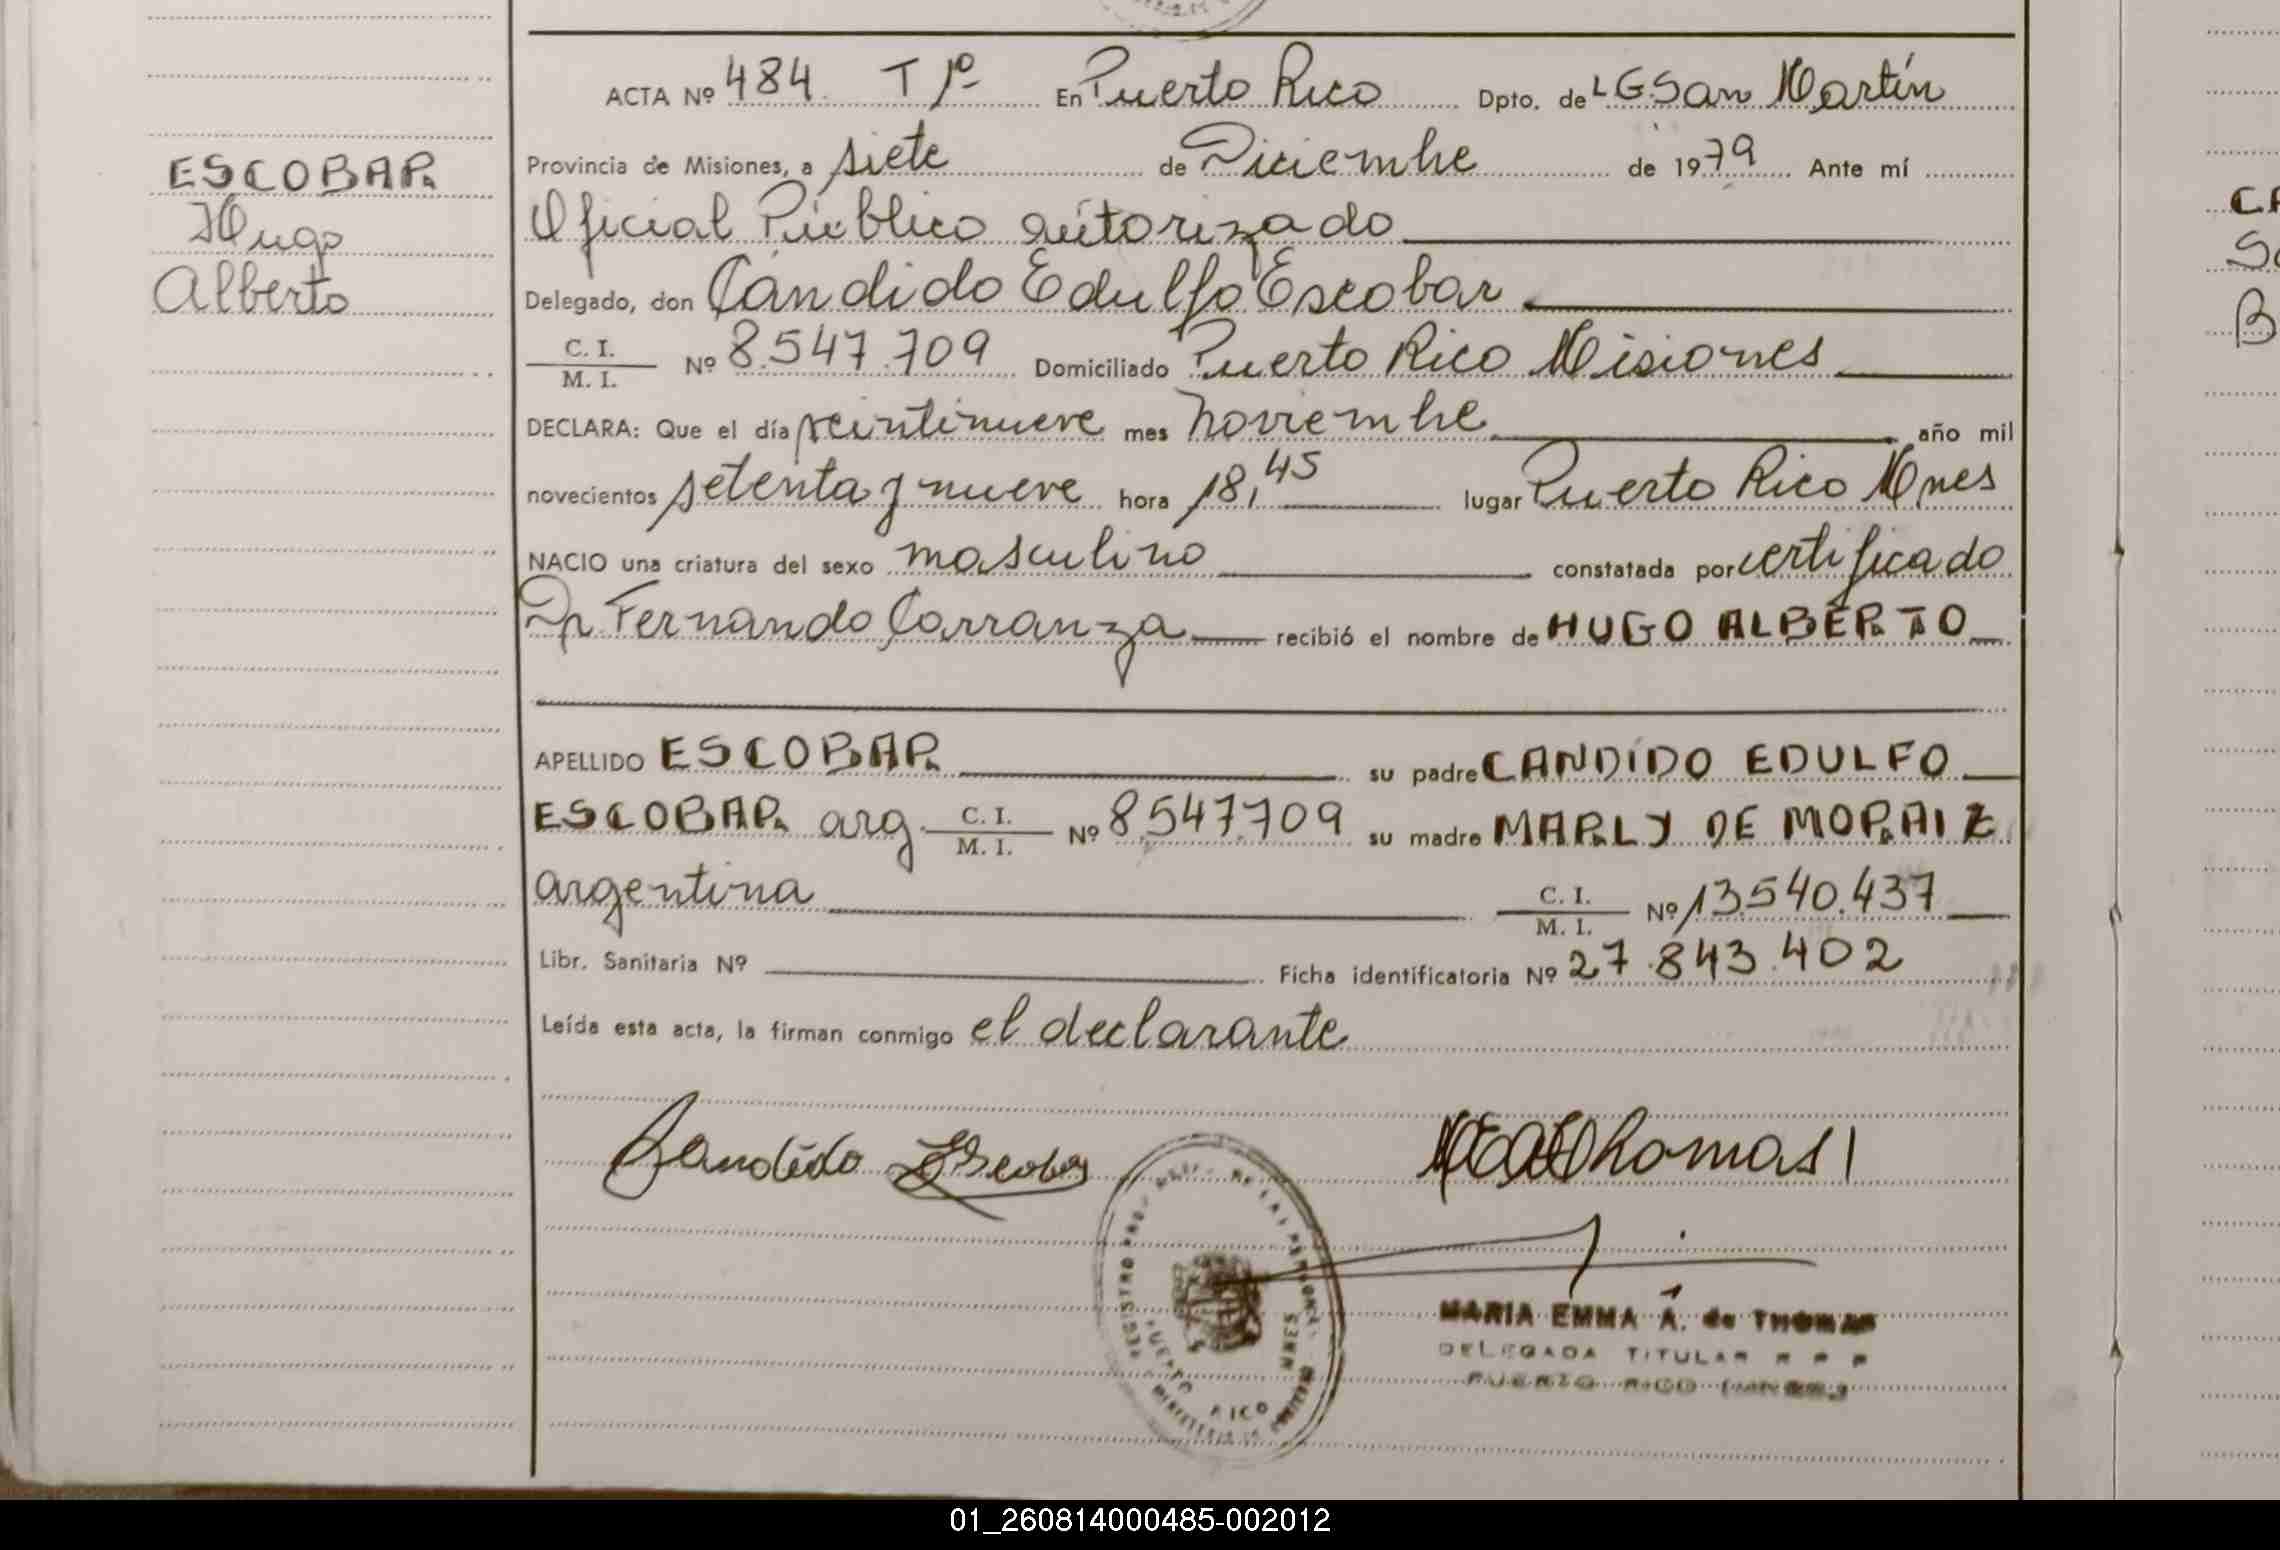 ACTA Nº 484 T 1º En Puerto Rico Dpto. de L G San Martín
ESCOBAR
Hugo
Alberto
Provincia de Misiones, a siete de Diciembre de 1979 Ante mí
Oficial Público autorizado
Delegado, don Cándido Edulfo Escobar
C. I.
M. I.
Nº 8.547.709 Domiciliado Puerto Rico Misiones
DECLARA: Que el día veintinueve mes noviembre año mil
novecientos setenta y nueve hora 18,45 lugar Puerto Rico Mnes
NACIO una criatura del sexo masculino constatada por certificado
Dr Fernando Carranza recibió el nombre de HUGO ALBERTO
APELLIDO ESCOBAR su padre CANDIDO EDULFO
ESCOBAR arg. C. I. M. I. Nº 8.547.709 su madre MARLY DE MORAIZ
argentina C. I. M. I. Nº 13.540.437
Libr. Sanitaria Nº Ficha identificatoria Nº 27.843.402
Leída esta acta, la firman conmigo el declarante
Candido Escobar
MARIA EMMA A. de THOMAS
DELEGADA TITULAR R P P
PUERTO RICO
PUERTO RICO MNES
CA
B
01_260814000485-002012